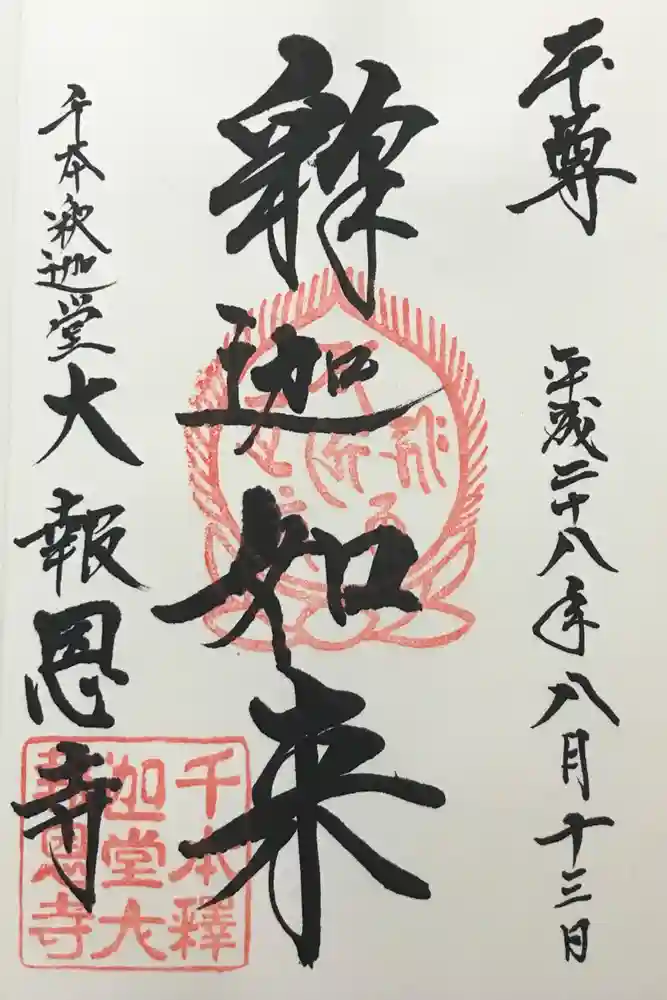 本尊
平成二十八年八月十三日
釈迦如来
千本釈迦堂大報恩寺
千本釋
迦堂大
報恩寺